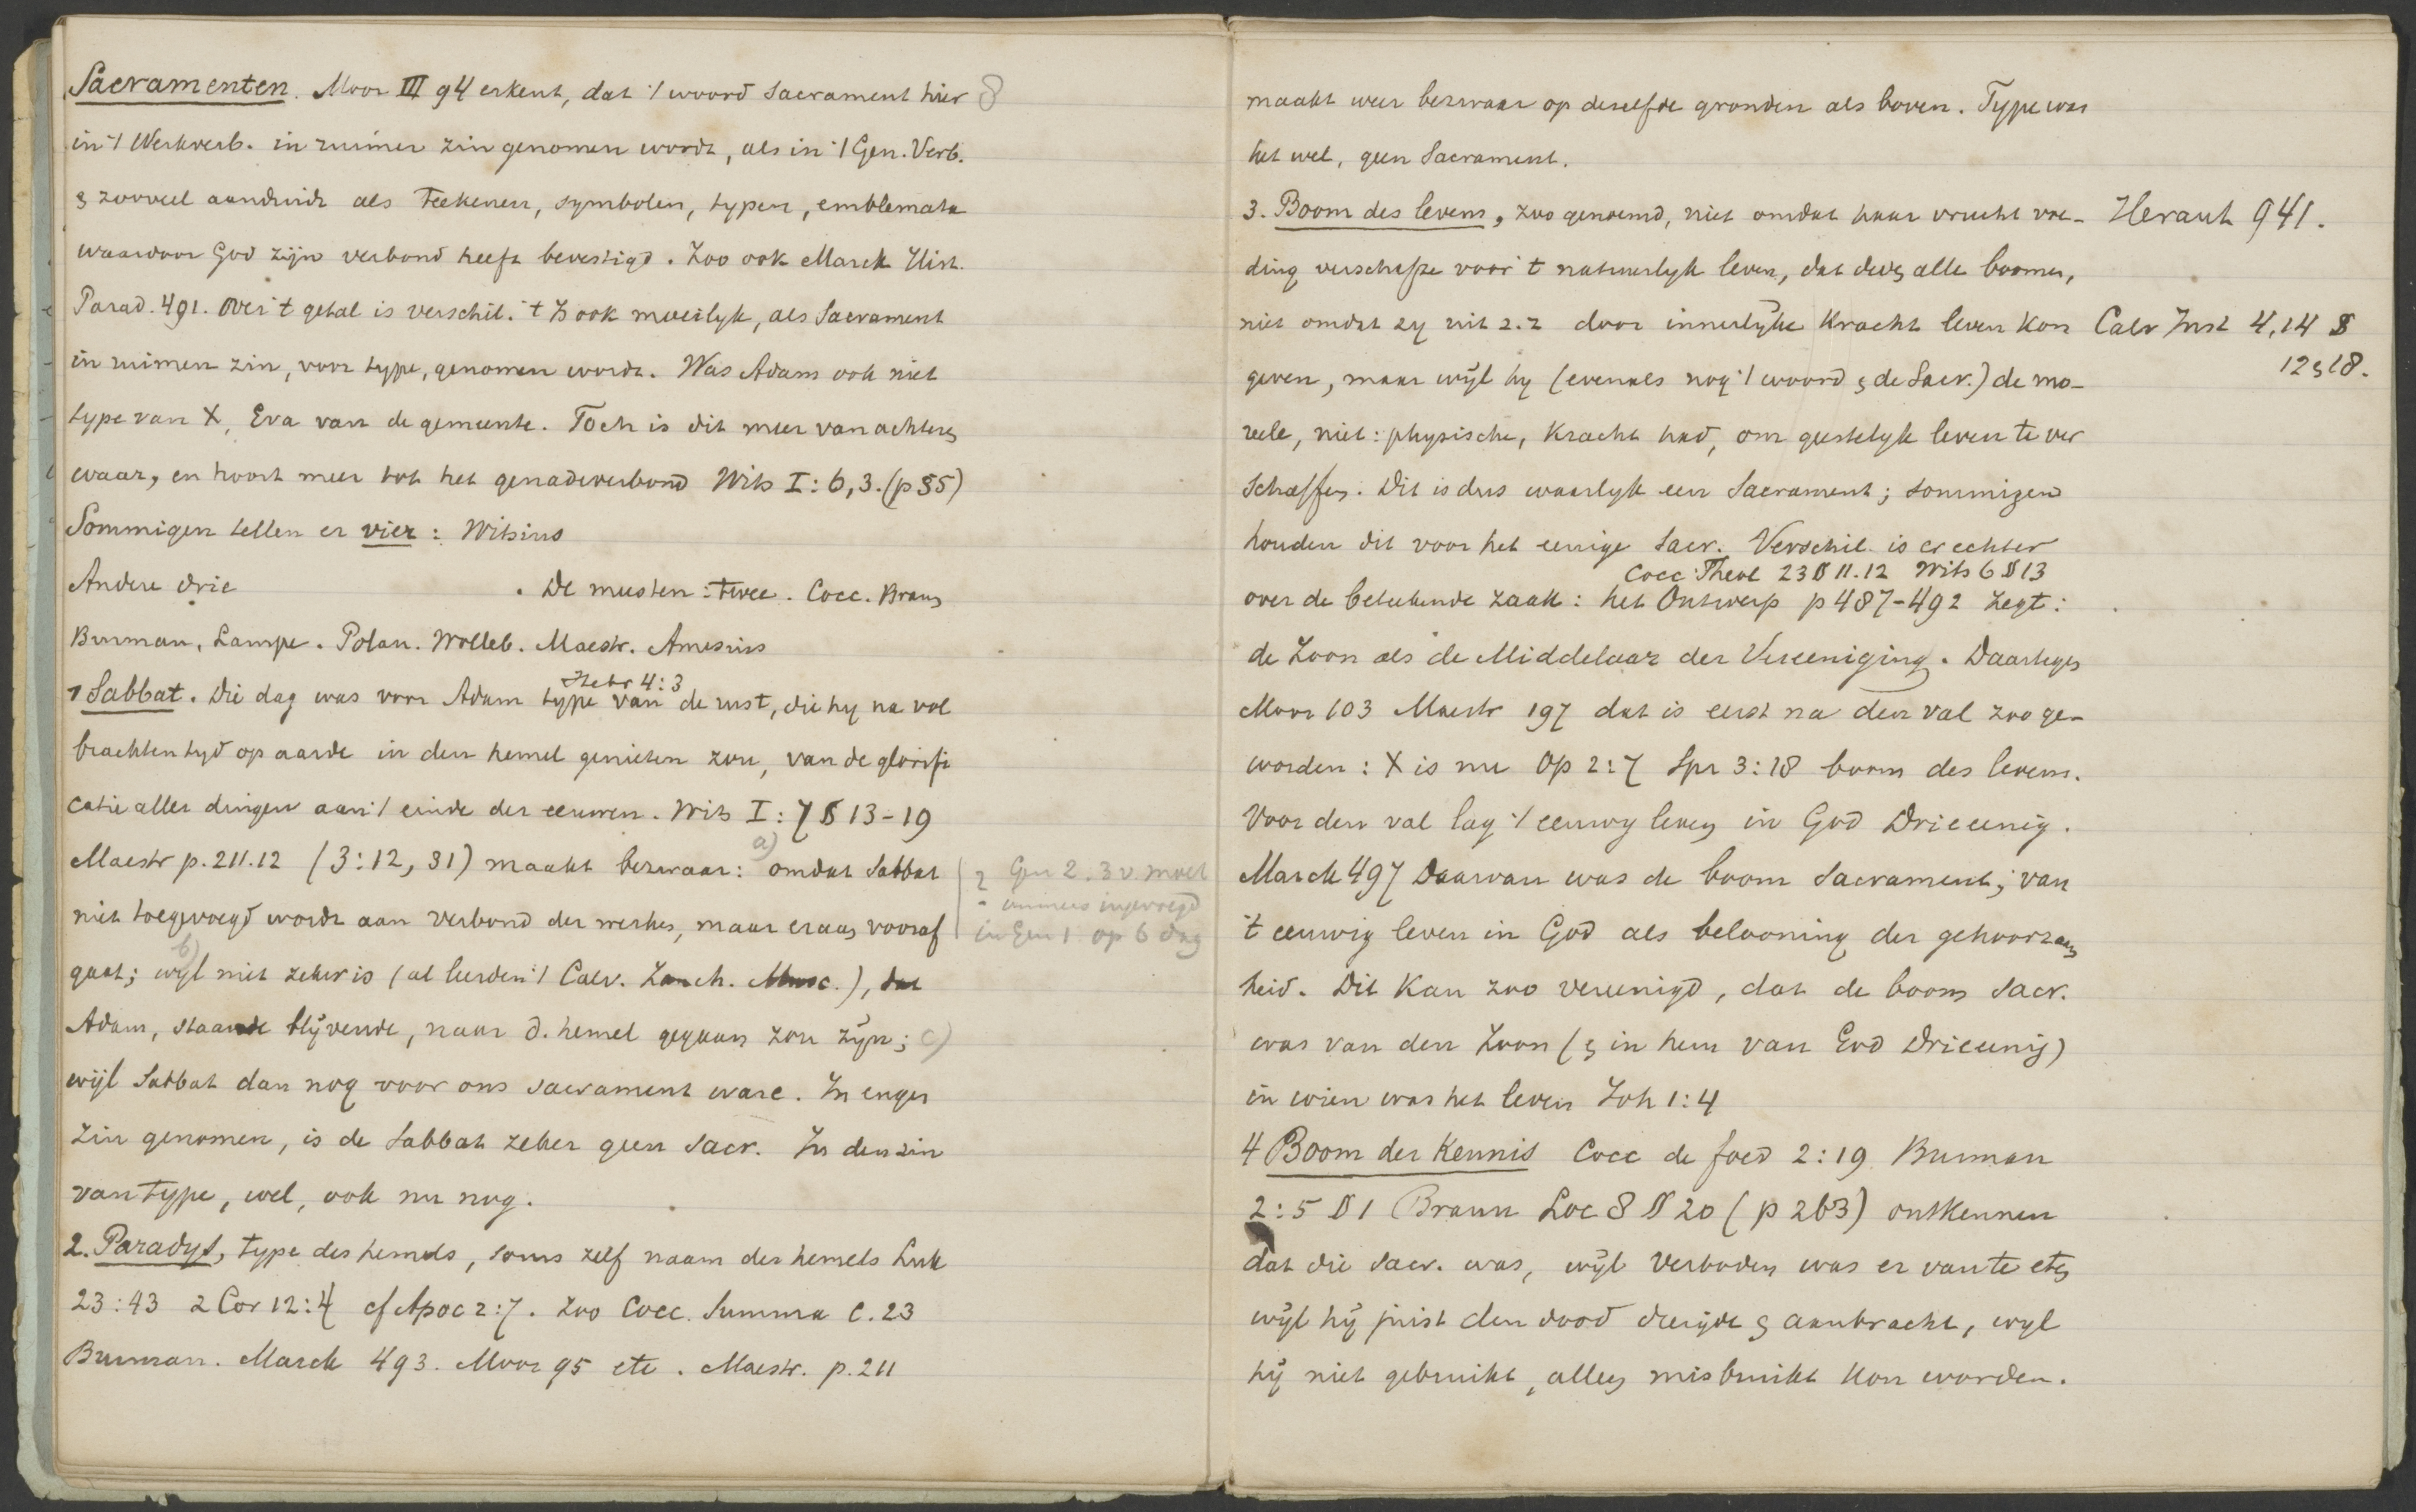 Sacramenten. Moor III 94 erkent, dat 't woord Sacrament hier 8
in 't Werkverb. in ruimer zin genomen wordt, als in 't Gen. Verb.
& zooveel aanduidt als teekenen, symbolen, typen, emblemata
waardoor God zijn verbond heeft bevestigd. Zoo ook Marck Hist.
Parad. 491. Over 't getal is verschil. 't Is ook moeilyk, als Sacrament
in ruimen zin, voor type, genomen wordt. Was Adam ook niet
type van X, Eva van de gemeente. Toch is dit meer van achteren
waar, en hoort meer tot het genadeverbond Wits I: 6, 3. (p 85)
Sommigen tellen er vier: Witsius
Andere drie . De meesten: twee. Cocc. Braun
Burman, Lampe. Polan. Wolleb. Maestr. Amesius
Hebr 4:3
1 Sabbat. Die dag was voor Adam type van de rust, die hy na vol
brachten tyd op aarde in den hemel genieten zou, van de glorifi
catie aller dingen aan 't einde der eeuwen. Wits I: 7 § 13-19
Maestr p. 211.12 (3:12, 31) maakt bezwaar: a) omdat Sabbat
niet toegevoegd wordt aan verbond der werken, maar eraan vooraf
gaat; b) wyl niet zeker is (al leerden 't Calv. Zanch. Musc.), dat
Adam, staande blijvende, naar d. hemel gegaan zou zijn; c)
wijl Sabbat dan nog voor ons sacrament ware. In enger
zin genomen, is de Sabbat zeker geen Sacr. In den zin
van type, wel, ook nu nog.
2. Paradys, type des hemels, soms zelf naam des hemels Luk
23:43 2 Cor 12:4 cf Apoc 2:7. Zoo Cocc. Summa c. 23
Burman. Marck 493. Moor 95 etc. Maestr. p. 211
? Gen 2. 3 v. moet
immers ingevoegd
in Gen 1 op 6 dag
maakt weer bezwaar op deselfde gronden als boven. Type was
het wel, geen Sacrament.
3. Boom des levens, zoo genoemd, niet omdat haar vrucht voe- Heraut 941.
ding verschafte voor 't natuurlyk leven, dat deden alle boomen,
niet omdat zy uit z.z door innerlijke kracht leven kon Calv Inst 4,14 §
12 & 18.
geven, maar wijl hy (evenals nog 't woord & de Sacr.) de mo-
reele, niet: physische, kracht had, om geestelyk leven te ver
schaffen. Dit is dus waarlyk een Sacrament; sommigen
houden dit voor het eenige Sacr. Verschil is er echter
Cocc. Theol 23 § 11.12 Wits 6 § 13
over de beteekende zaak: het Ontwerp p 487-492 zegt:
de Zoon als de Middelaar der Vereeniging. Daartegen
Moor 103 Maestr 197 dat is eerst na den val zoo ge-
worden: X is nu Op 2:7 Spr 3:18 boom des levens.
Voor den val lag 't eeuwig leven in God Drieeenig.
Marck 497 Daarvan was de boom Sacrament; van
't eeuwig leven in God als belooning der gehoorzaam
heid. Dit kan zoo vereenigd, dat de boom Sacr.
was van den Zoon (& in hem van God Drieeenig)
in wien was het leven Joh 1:4
4 Boom der kennis Cocc de foed 2:19 Burman
2:5 § 1 Braun Loc 8 § 20 (p 263) ontkennen
dat die Sacr. was, wijl verboden was er van te eten
wijl hij juist den dood dreigde & aanbracht, wyl
hij niet gebruikt, alleen misbruikt kon worden.